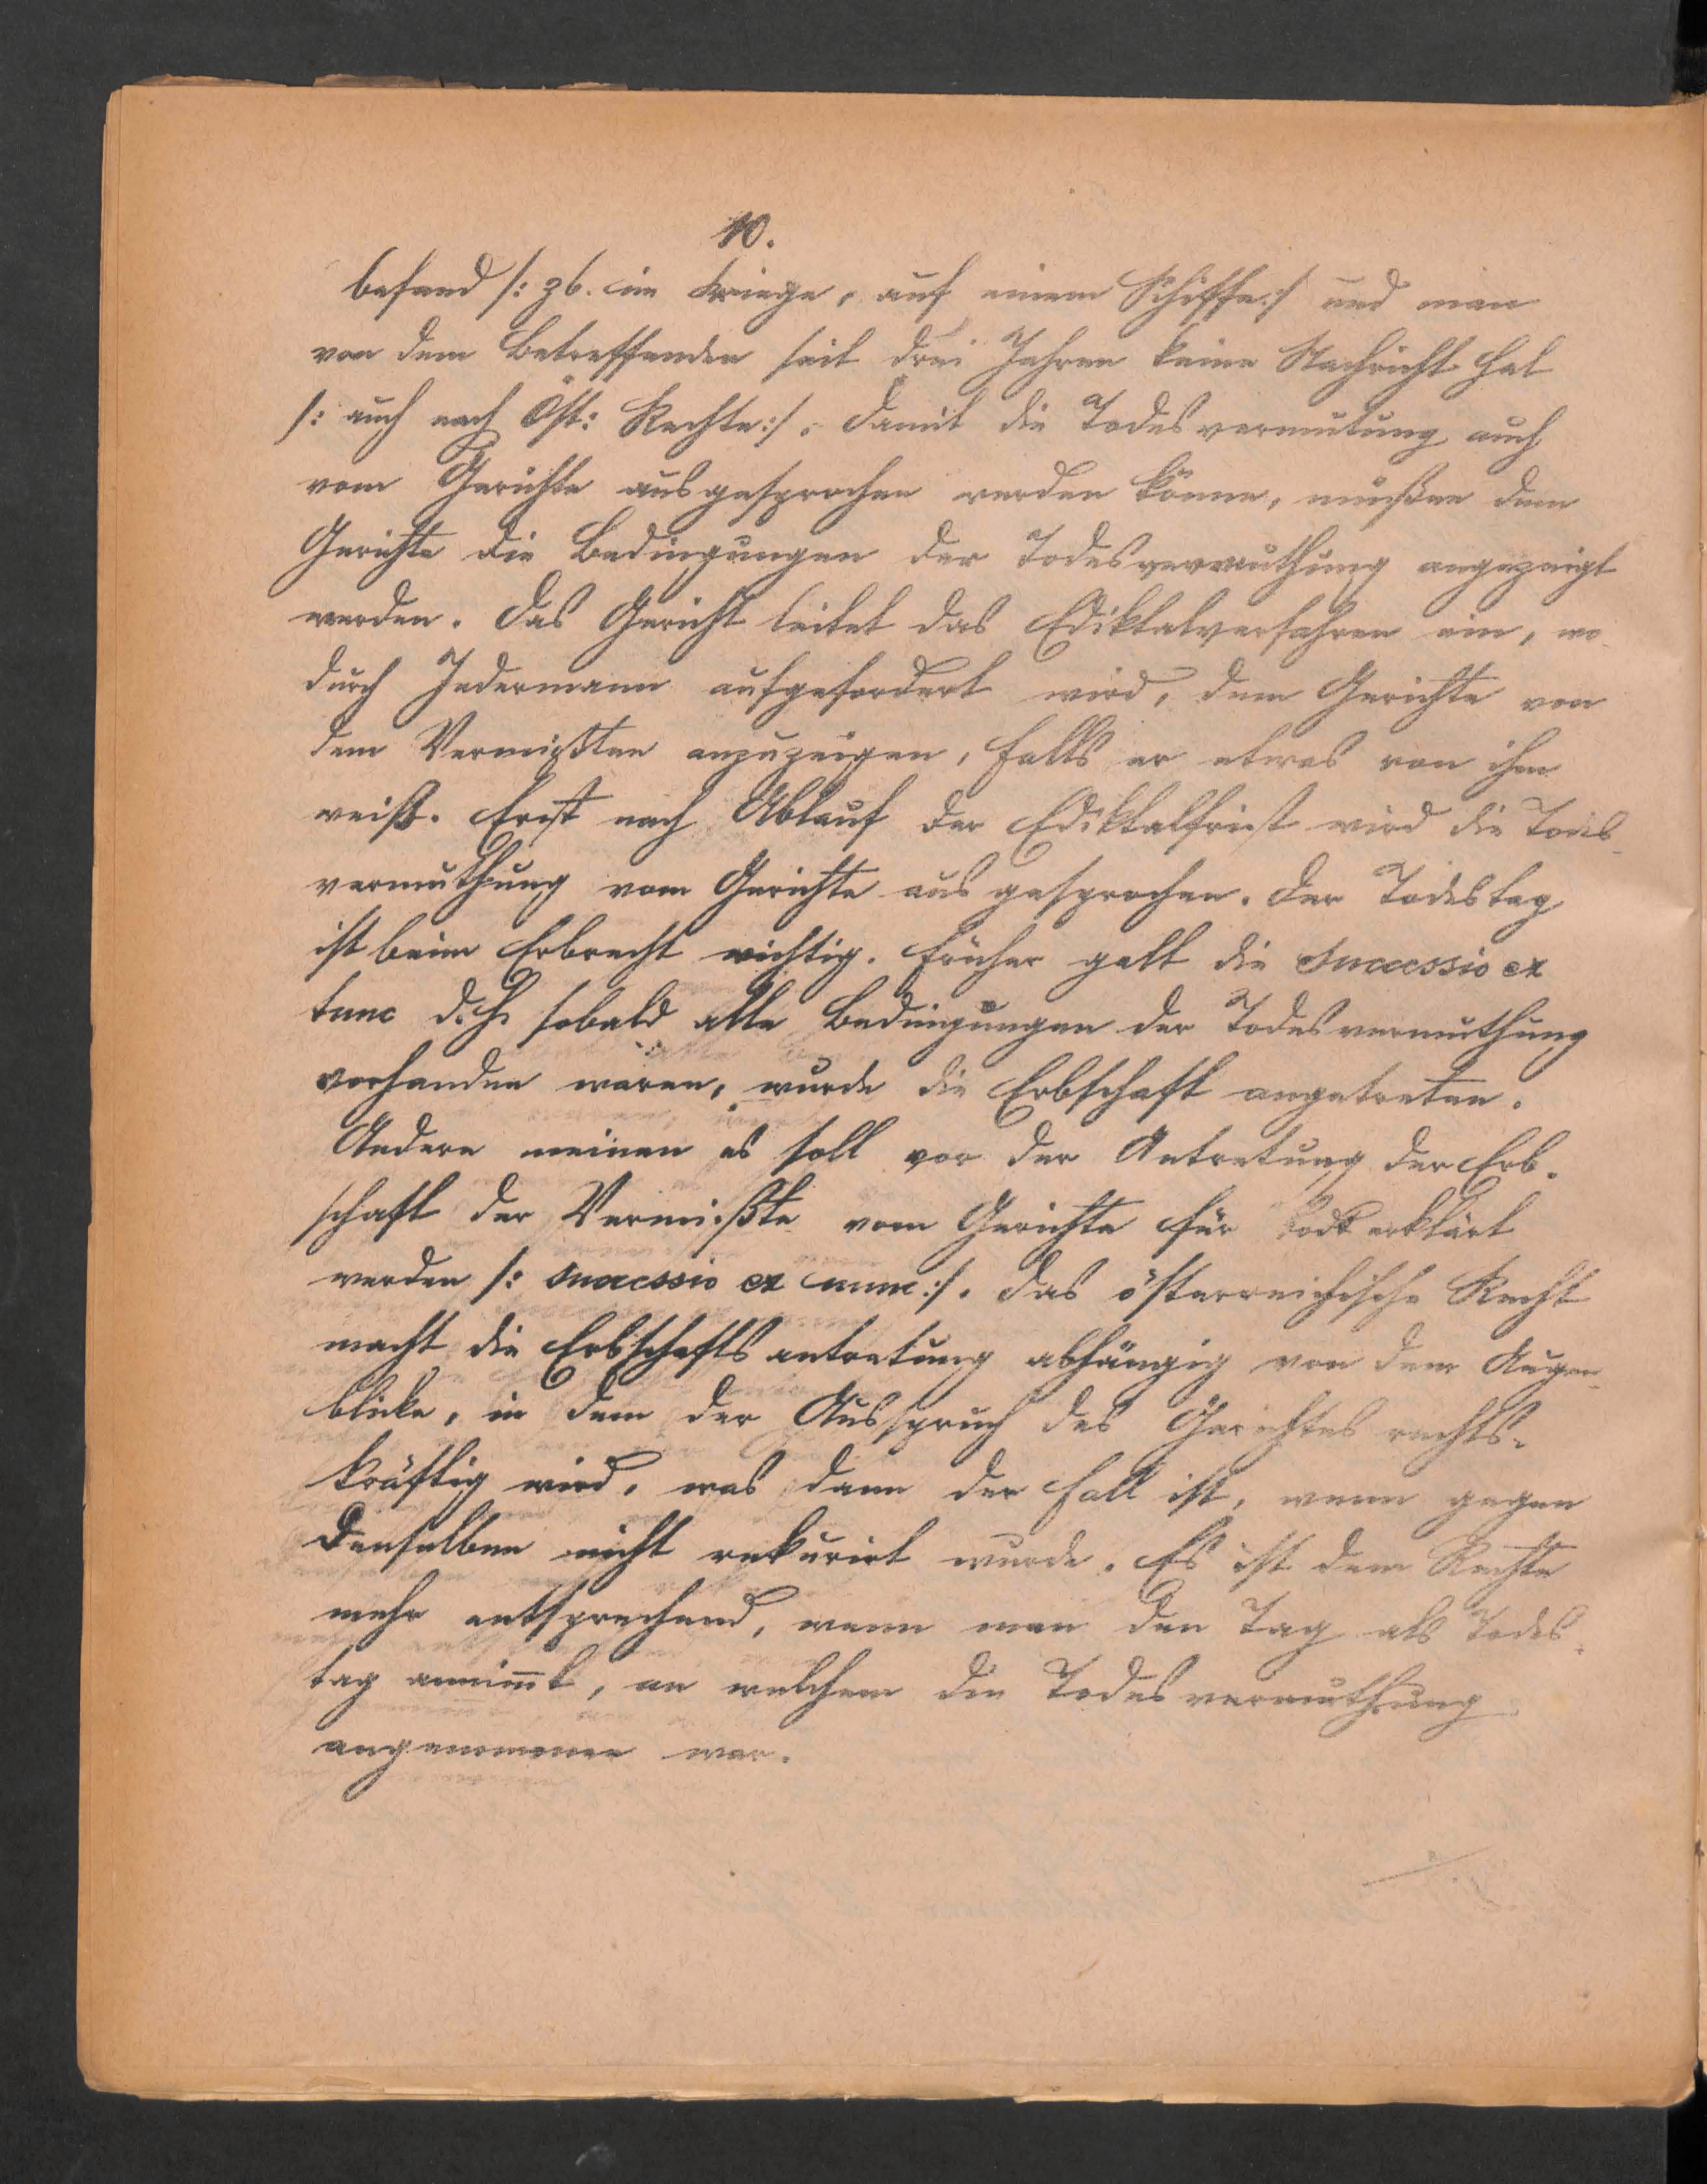 10.
befand /: zb. im Kriege, auf einem Schiffe :/ und man
von dem Betreffenden seit drei Jahren keine Nachricht hat
/: auch nach Öst: Rechte :/. Damit die Todesvermutung auch
vom Gerichte ausgesprochen werden könne, müßen dem
Gerichte die Bedingungen der Todesvermuthung angezeigt
werden. Das Gericht leitet das Ediktalverfahren ein, wo-
durch Jedermann aufgefordert wird, dem Gerichte von
dem Vermißten anzuzeigen, falls er etwas von ihm
weiß. Erst nach Ablauf der Ediktalfrist wird die Todes-
vermuthung vom Gerichte ausgesprochen. Der Todestag
ist beim Erbrecht wichtig. Früher galt die successio ex
tunc d.h. sobald alle Bedingungen der Todesvermuthung
vorhanden waren, wurde die Erbschaft angetreten.
Andere meinen es soll vor der Antretung der Erb-
schaft der Vermißte vom Gerichte für todt erklärt
werden /: successio ex nunc :/. Das österreichische Recht
macht die Erbschaftsantretung abhängig von dem Augen-
blicke, in dem der Ausspruch des Gerichtes rechts-
kräftig wird, was dann der Fall ist, wenn gegen
denselben nicht rekurirt wurde. Es ist dem Rechte
mehr entsprechend, wenn man den Tag als Todes-
tag annim̅t, an welchem die Todesvermuthung
angenommen war.